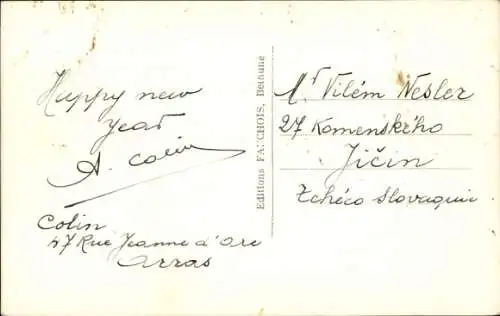 Happy new
year
A. Colin
Colin
47 Rue Jeanne d'Arc
Arras
Editions FAUCHOIS, Béthune
Mr Vilém Nesler
27 Komenského
Jičín
Tchéco Slovaquie